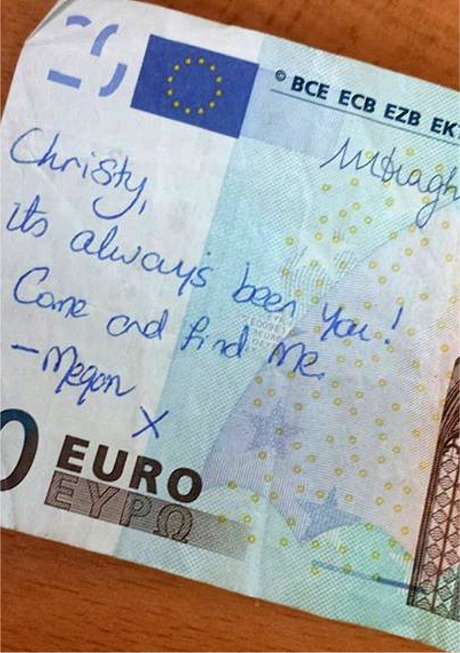 © BCE ECB EZB EK
Christy,
its always been you!
Come and find me.
- Megan
X
0 EURO
ΕΥΡΩ